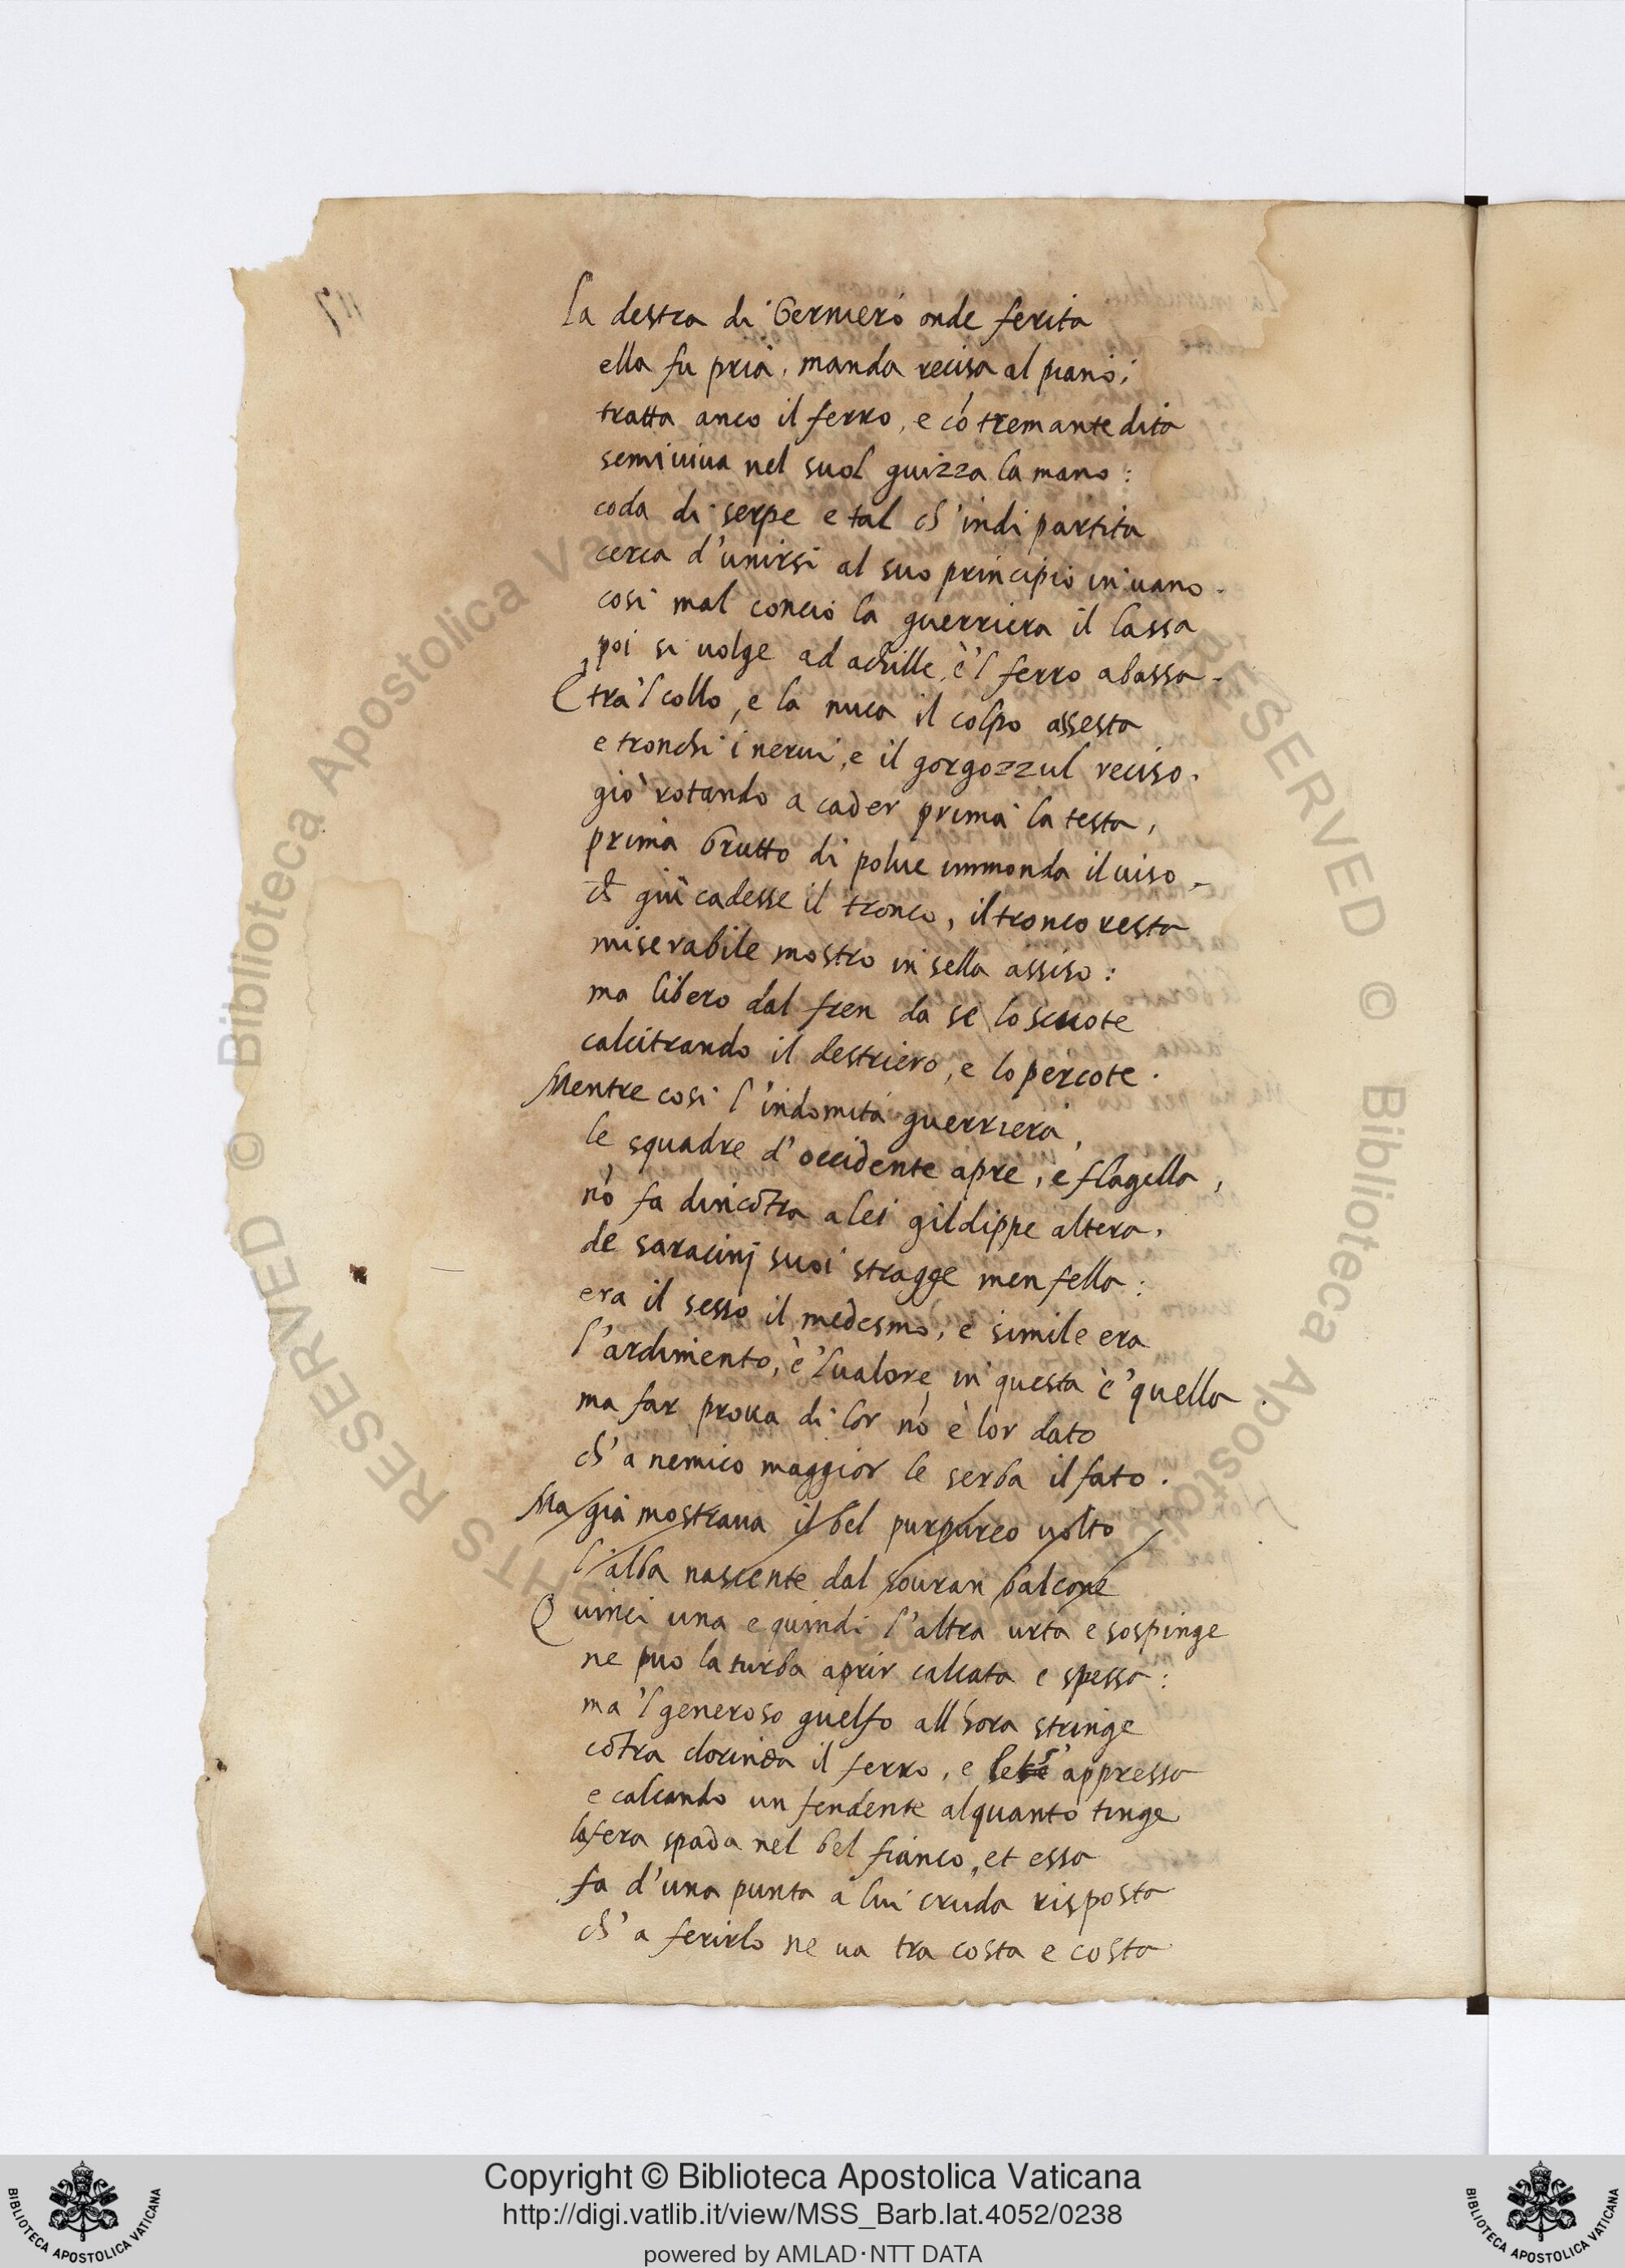 La destra di Gerniero onde ferita
ella fu pria, manda recisa al piano;
tratta anco il ferro, e có tremante dita
semiuiua nel suol guizza la mano:
coda di serpe e tal ch'indi partita
cerca d'unirsi al suo principio in uano.
cosi mal concio la guerriera il lassa
poi si uolge ad achille, e'l ferro abassa.
E tra'l collo, e la nuca il colpo assesta
e tronchi i nerui, e il gorgozzul reciso.
gio rotando a cader prima la testa,
prima brutto di polue immonda il uiso.
ch giu cadesse il tronco, il tronco resta
miserabile mostro in sella assiso:
ma libero dal fren da se lo scuote
calcitrando il destriero, e lo percote.
Mentre cosi l'indomita guerriera,
le squadre d'occidente apre, e flagella,
nó fa dincõtra a lei gildippe altera.
de saracinj suoi stragge men fella:
era il sesso il medesmo, e simile era
l'ardimento, e'l ualore in questa e'quella.
ma far proua di lor nó è lor dato
ch'a nemico maggior le serba il fato.
Ma già mostraua il bel purpureo uolto
l'alba nascente dal souran balcone
Quinci una e quindi l'altra urta e sospinge
ne puo la turba aprir calcata e spessa:
ma'l generoso guelfo allhora stringe
cõtra clorinda il ferro, e appressa
e calcando un fendente alquanto tinge
la fera spada nel bel fianco, et essa
fa d'una punta a lui cruda risposta
ch'a ferirlo ne ua tra costa e costa
Copyright © Biblioteca Apostolica Vaticana
http://digi.vatlib.it/view/MSS_Barb.lat.4052/0238
powered by AMLAD·NTT DATA
BIBLIOTECA APOSTOLICA VATICANA
BIBLIOTECA APOSTOLICA VATICANA